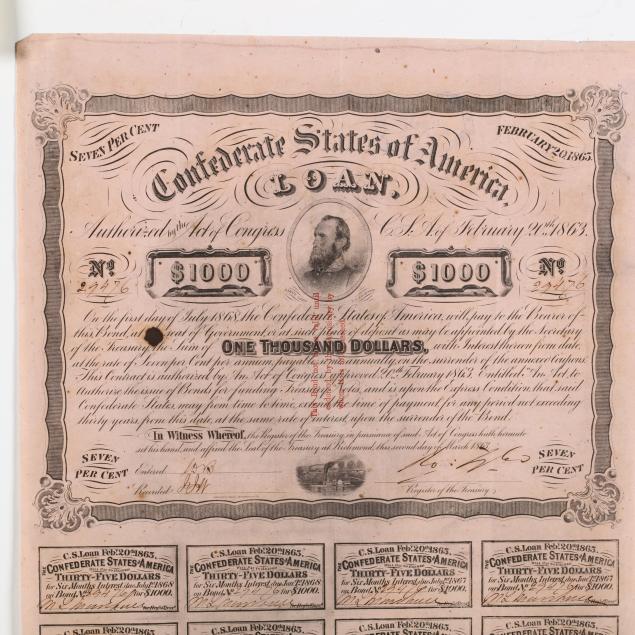 SEVEN PER CENT
FEBRUARY 20, 1863.
Confederate States of America,
LOAN,
Authorized by the Act of Congress C.S.A. of February 20th 1863.
No $1000 $1000 No
29476 29476
On the first day of July 1868 the Confederate States of America, will pay to the Bearer of
this Bond, at the of Government, or at such place of deposit as may be appointed by the Secretary
of the Treasury, the Sum of ONE THOUSAND DOLLARS, with Interest thereon from date
at the rate of Seven per Cent per annum, payable semi-annually, on the surrender of the annexed Coupons.
This Contract is authorized by An Act of Congress approved 20th February 1863, Entitled "An Act to
authorize the issue of Bonds for funding Treasury Notes, and is upon the Express Condition that said
Confederate States may from time to time, extend the time of payment for any period not exceeding
thirty years, from this date, at the same rate of interest, upon the surrender of the Bond.
This Bond
In Witness Whereof, the Register of the Treasury, in pursuance of said Act of Congress hath hereunto
set his hand, and affixed the Seal of the Treasury at Richmond, this second day of March 1863.
SEVEN PER CENT
Entered
Recorded
Register of the Treasury
SEVEN PER CENT
C.S. Loan Feb. 20th 1863.
THE CONFEDERATE STATES OF AMERICA
THIRTY-FIVE DOLLARS
for Six Months Interest due July 1st 1868
on Bond No for $1000.
C.S. Loan Feb. 20th 1863.
THE CONFEDERATE STATES OF AMERICA
THIRTY-FIVE DOLLARS
for Six Months Interest due Jany 1st 1868
on Bond No for $1000.
C.S. Loan Feb. 20th 1863.
THE CONFEDERATE STATES OF AMERICA
THIRTY-FIVE DOLLARS
for Six Months Interest due July 1st 1867
on Bond No for $1000.
C.S. Loan Feb. 20th 1863.
THE CONFEDERATE STATES OF AMERICA
THIRTY-FIVE DOLLARS
for Six Months Interest due Jany 1st 1867
on Bond No for $1000.
C.S. Loan Feb. 20th 1863.
CONFEDERATE STATES OF AMERICA
C.S. Loan Feb. 20th 1863.
CONFEDERATE STATES OF AMERICA
C.S. Loan Feb. 20th 1863.
CONFEDERATE STATES OF AMERICA
C.S. Loan Feb. 20th 1863.
CONFEDERATE STATES OF AMERICA